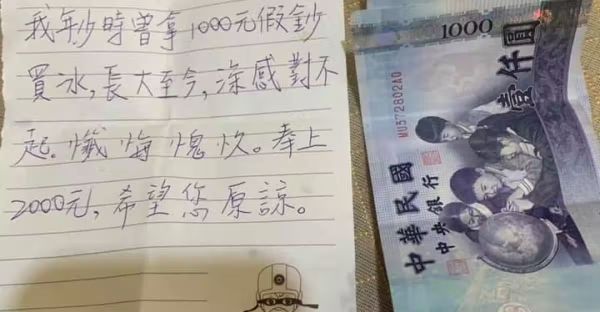 我年少時曾拿1000元假鈔
買冰,長大至今,深感對不
起。懺悔愧疚。奉上
2000元,希望您原諒。
1000
壹仟圓
WU372802AQ
中華民國
中央銀行